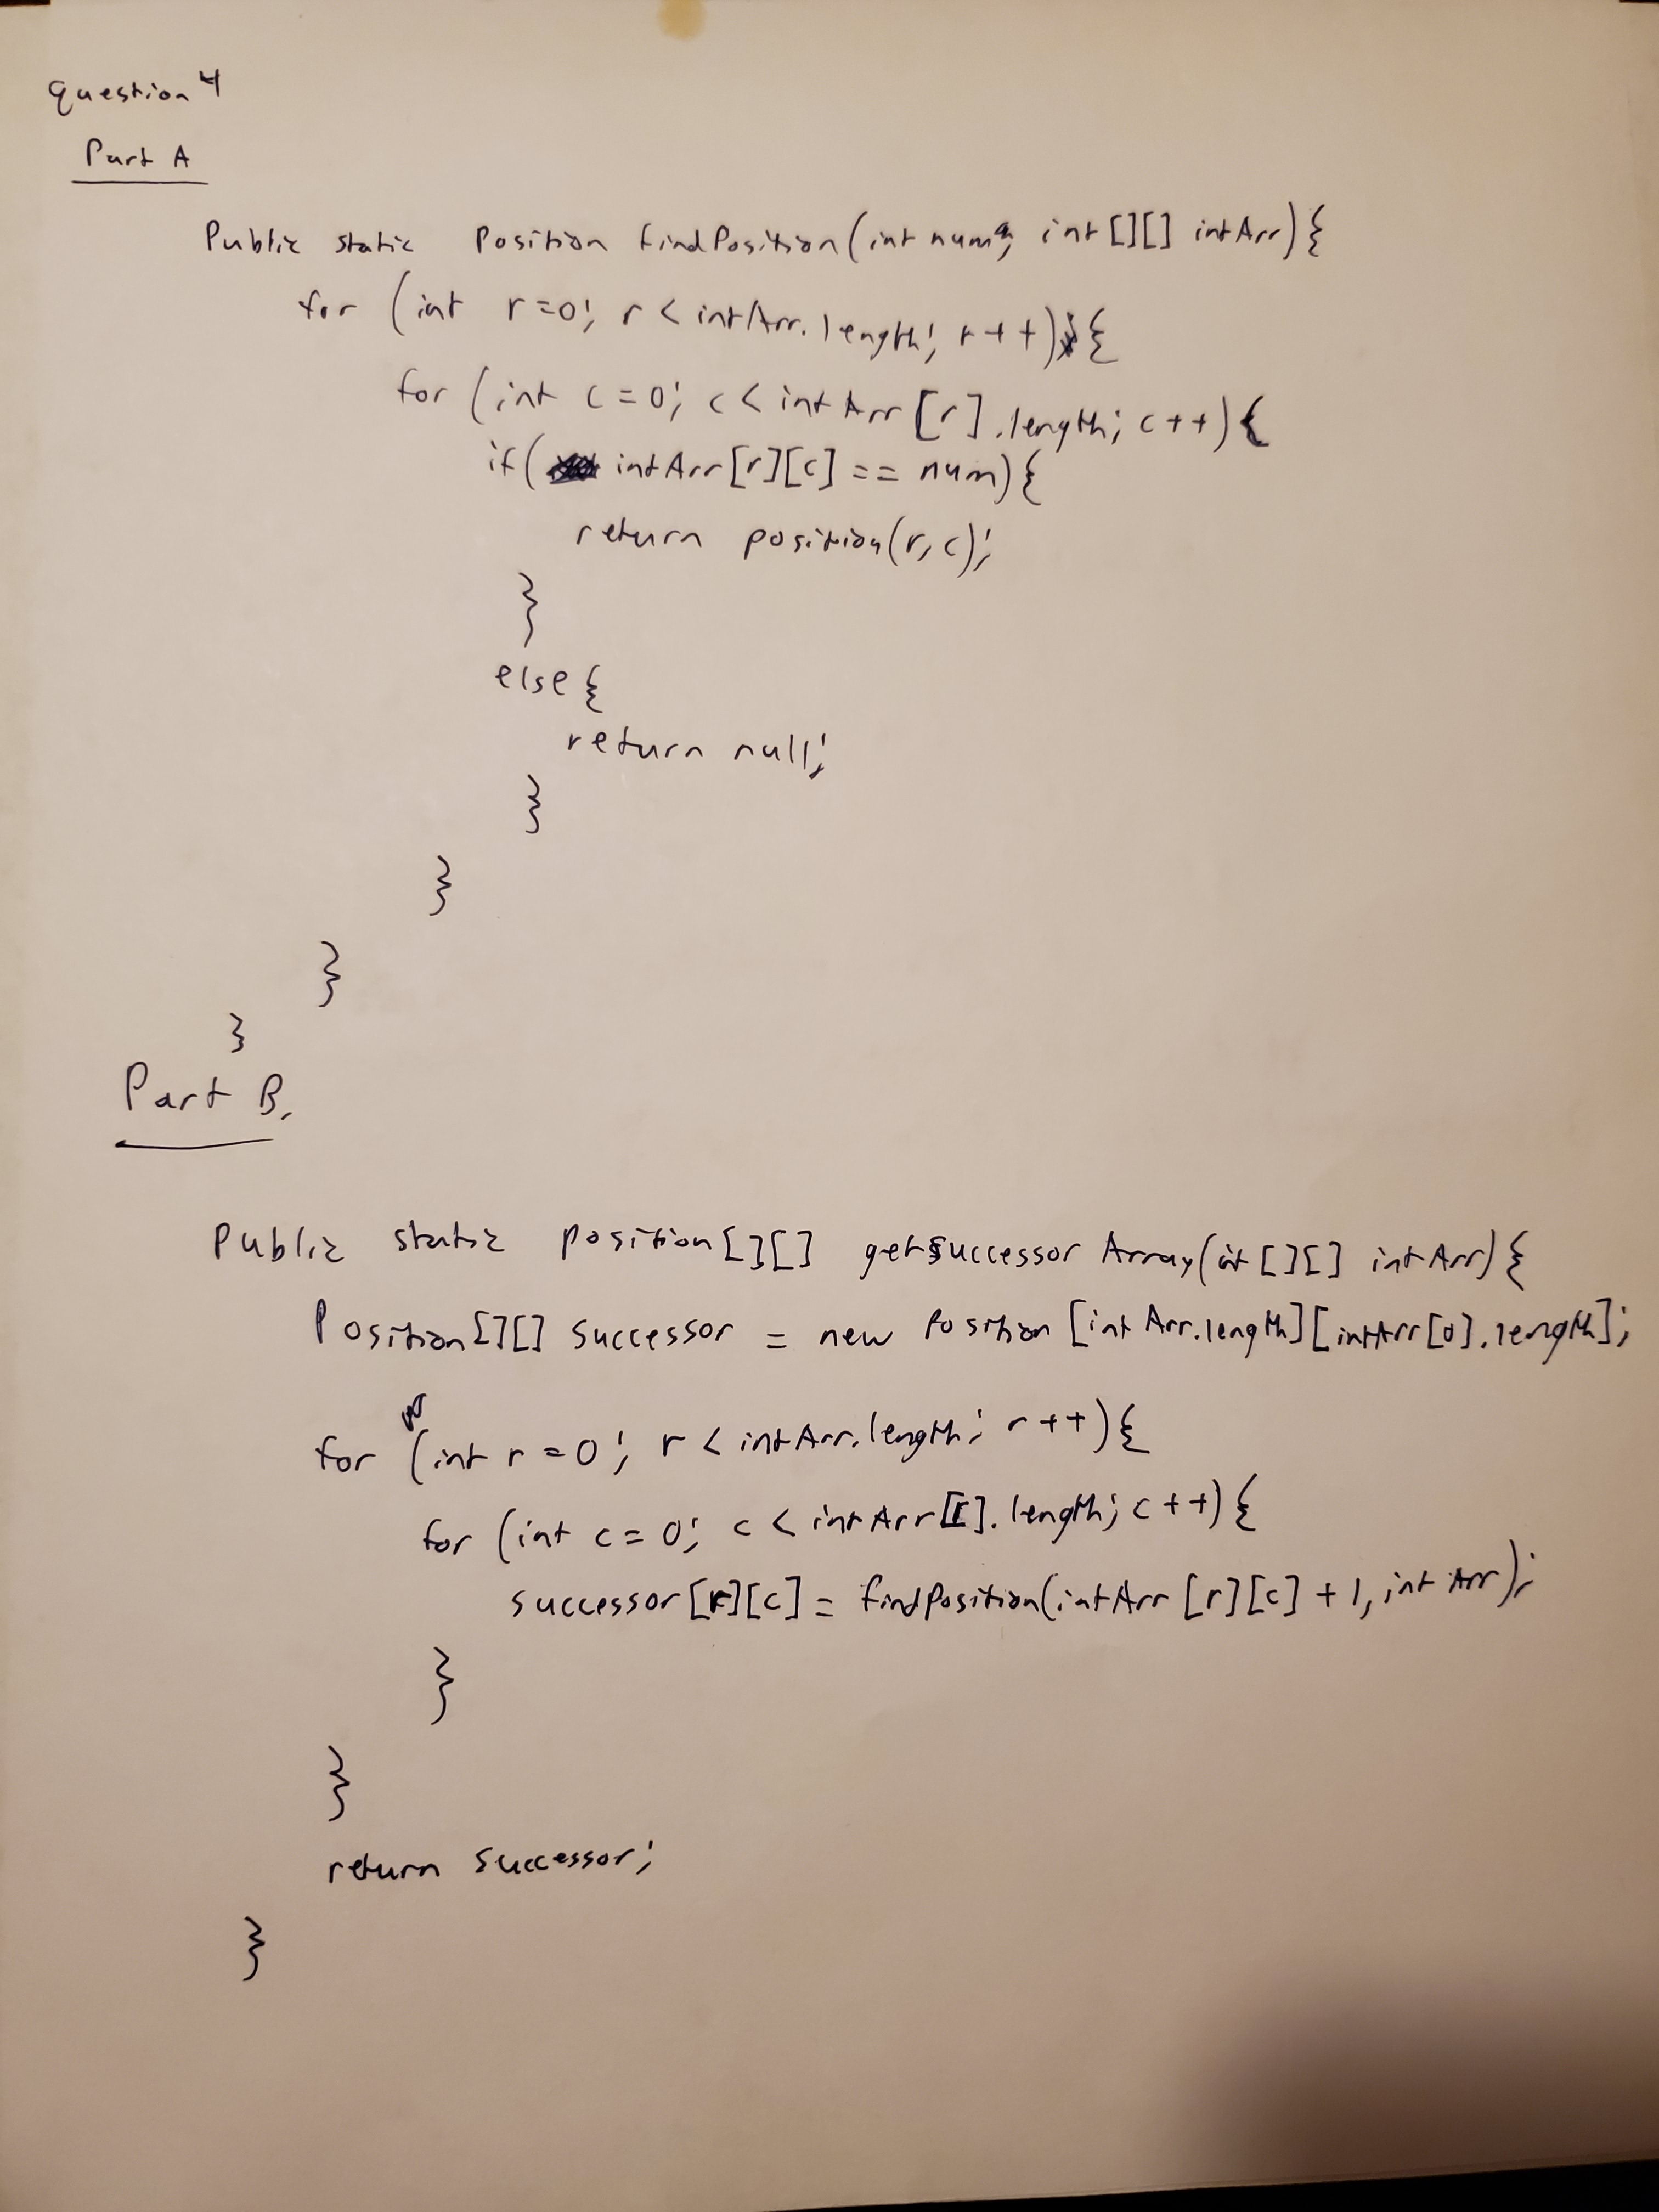 Question 4
Part A
Public static Position findPosition(int num, int[][] intArr){
for (int r=0; r < intArr.length; r++){
for (int c=0; c < intArr[r].length; c++){
if( intArr[r][c] == num){
return position(r,c);
}
else{
return null;
}
}
}
}
Part B.
Public static position[][] getSuccessor Array(int[][] intArr){
Position[][] successor = new Position [intArr.length][intArr[0].length];
for (int r=0; r < intArr.length; r++){
for (int c=0; c < intArr[r].length; c++){
successor[r][c] = findPosition(intArr[r][c]+1, intArr);
}
}
return successor;
}